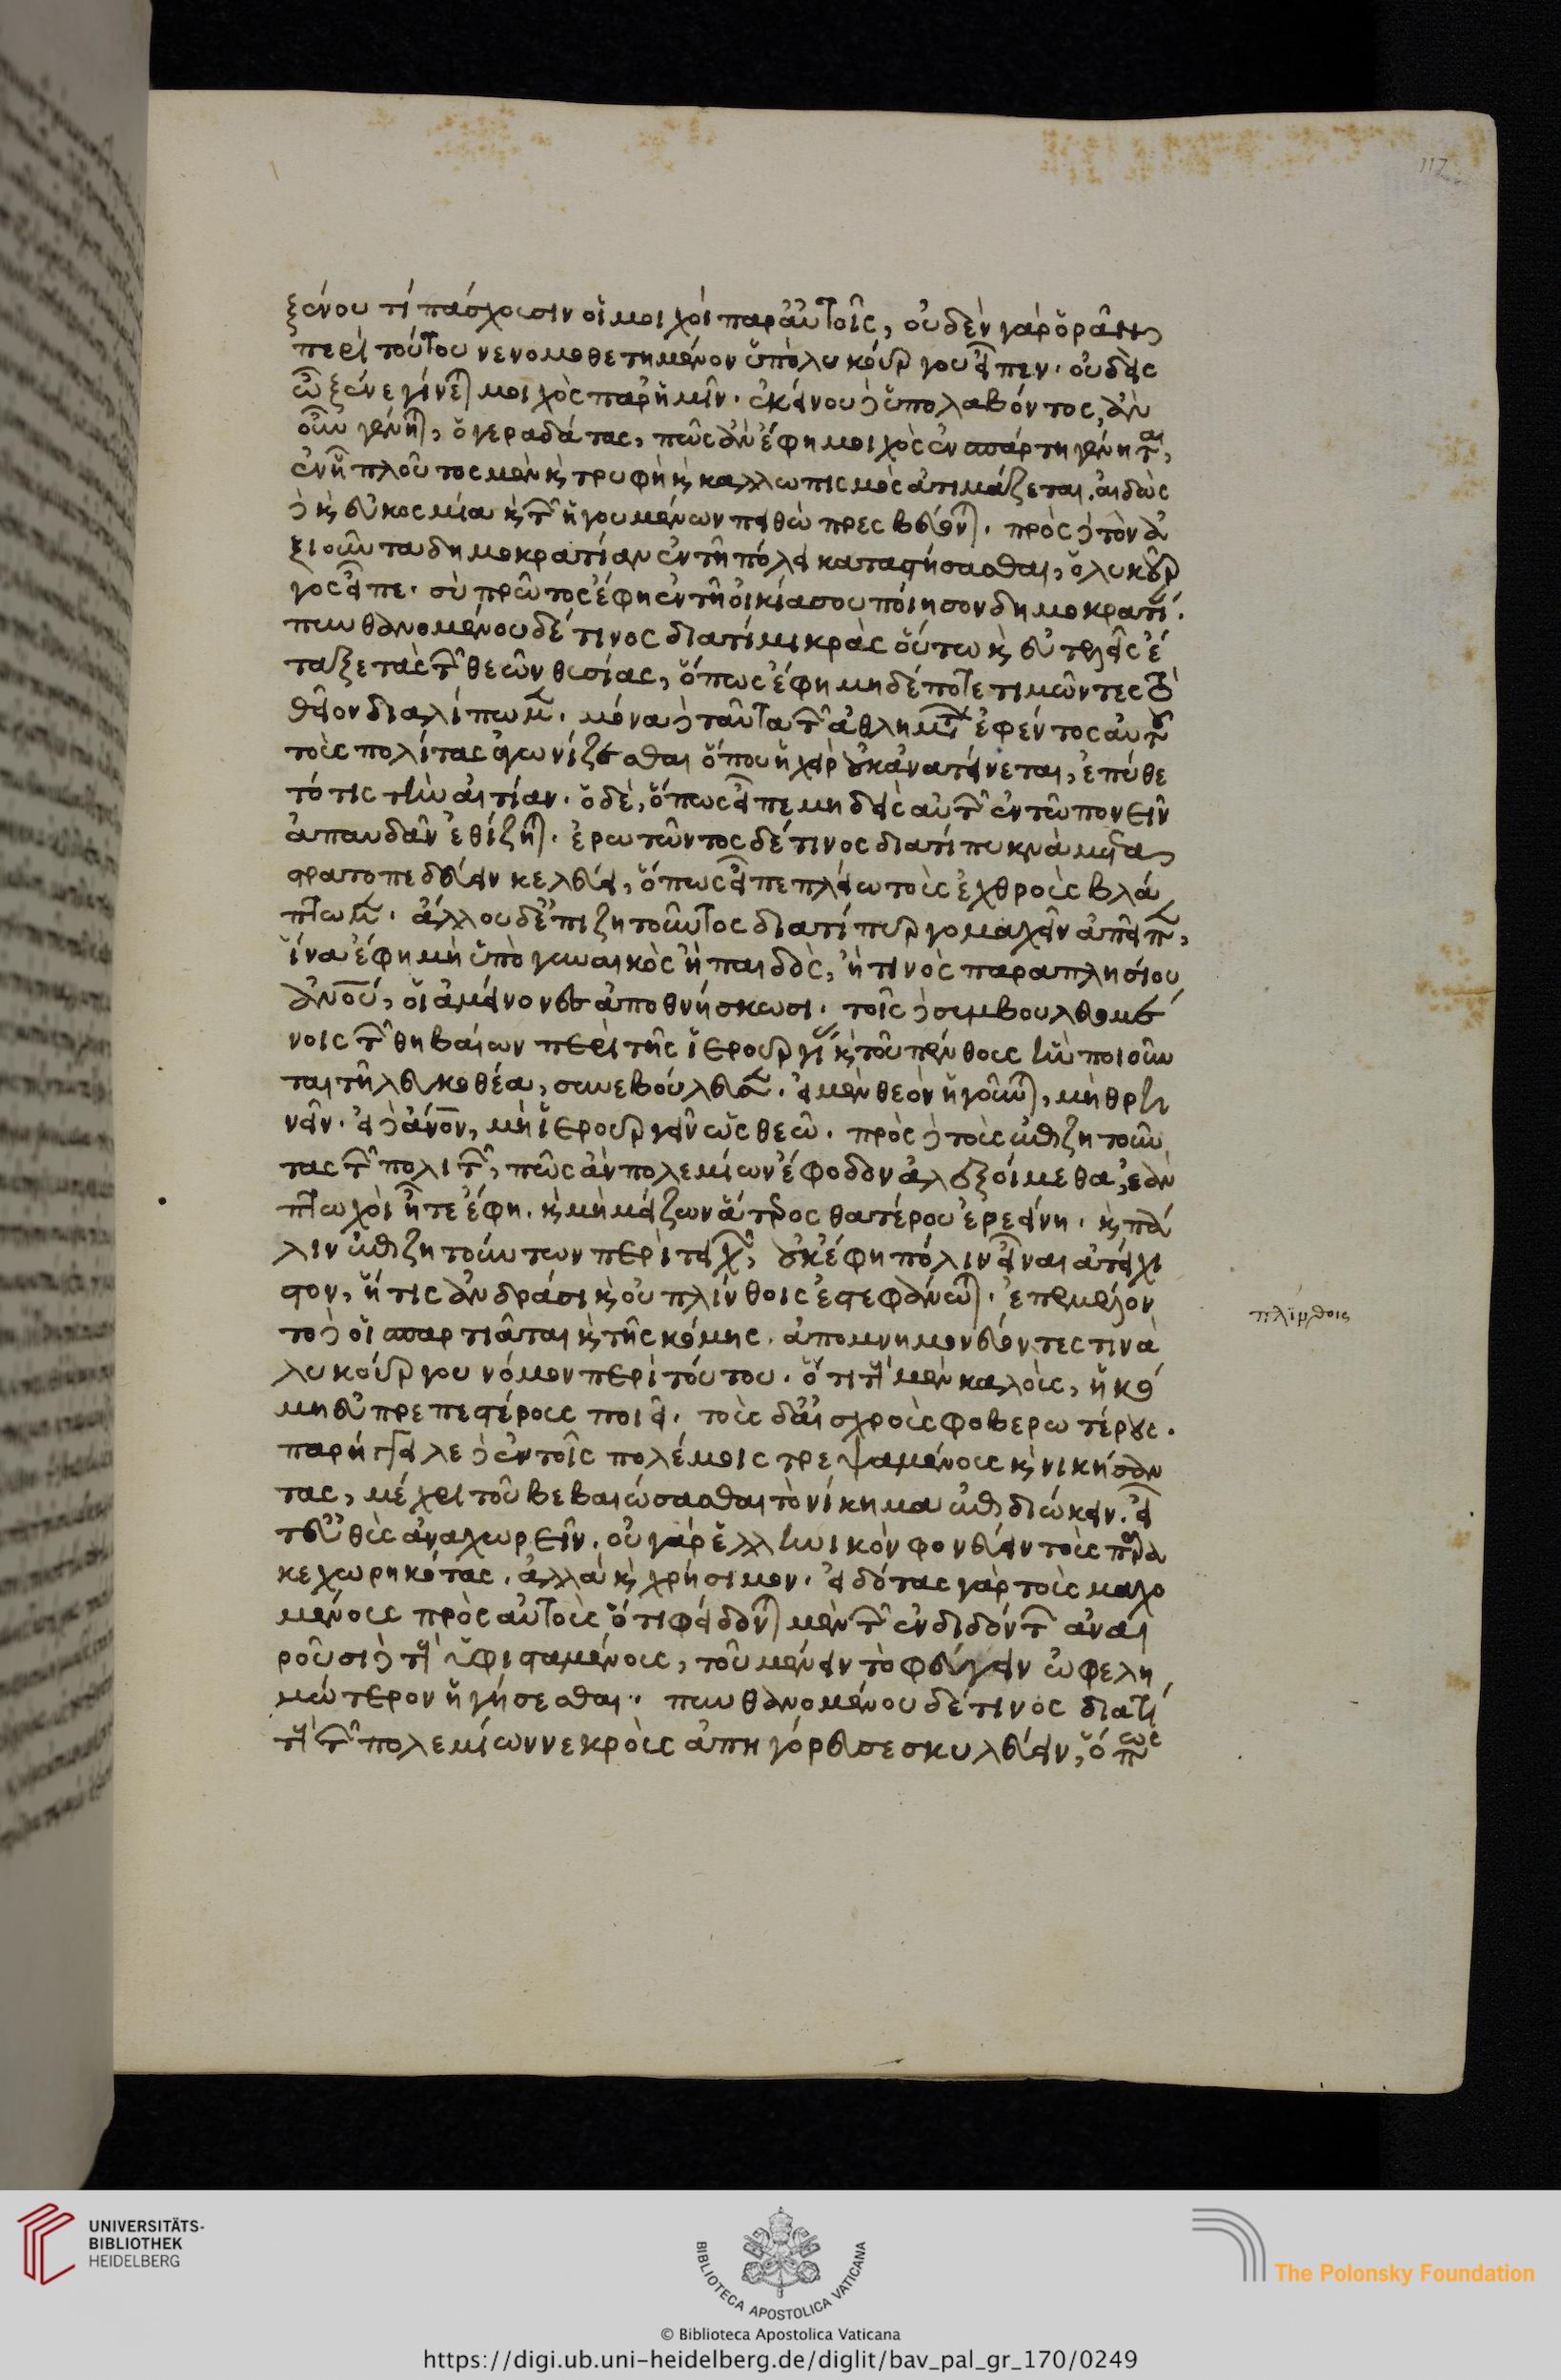 117
ξένου τί πάσχουσιν οἱ μοιχοὶ παρ' αὐτοῖς, οὐδὲν γὰρ ὁρᾶν
περὶ τούτου νενομοθετημένον ὑπὸ λυκούργου εἶπεν· οὐδεὶς
ὦ ξένε γίνεται μοιχὸς παρ' ἡμῖν. ἐκείνου δὲ ὑπολαβόντος, ἂν
οὖν γένηται, ὁ γεραδάτας, πῶς ἂν ἔφη μοιχὸς ἐν σπάρτη γένηται,
ἐν ἧ πλοῦτος μὲν καὶ τρυφὴ καὶ καλλωπισμὸς ἀτιμάζεται. αἰδὼς
δὲ καὶ εὐκοσμία καὶ τῶν ἡγουμένων πειθὼ πρεσβεύεται. πρὸς δὲ τὸν ἀ
ξιοῦντα δημοκρατίαν ἐν τῆ πόλει καταστήσασθαι, ὁ λυκοῦρ
γος εἶπε. σὺ πρῶτος ἔφη ἐν τῆ οἰκία σου ποίησον δημοκρατίαν.
πυνθανομένου δέ τινος διατί μικρὰς οὕτω καὶ εὐτελεῖς ἔ
ταξε τὰς τῶν θεῶν θυσίας, ὅπως ἔφη μηδέποτε τιμῶντες τὸ
θεῖον διαλίπωμεν. μόνα δὲ ταῦτα τῶν ἀθλημάτων ἐφέντος αὐτοῦ
τοὺς πολίτας ἀγωνίζεσθαι ὅπου ἡ χεὶρ οὐκ ἀνατείνεται, ἐπύθε
τό τις τὴν αἰτίαν. ὁ δὲ, ὅπως εἶπε μηδεὶς αὐτῶν ἐν τῶ πονεῖν
ἀπαυδᾶν ἐθίζηται. ἐρωτῶντος δέ τινος διατί πυκνὰ μετα
στρατοπεδεύειν κελεύει, ὅπως εἶπε πλείω τοὺς ἐχθροὺς βλά
πτωμεν. ἄλλου δ' ἐπιζητοῦντος διατί πυργομαχεῖν ἀπεῖπεν,
ἵνα ἔφη μὴ ὑπὸ γυναικὸς ἢ παιδὸς, ἤ τινος παραπλησίου
ἀνοῦ, οἱ ἀμείνονες ἀποθνήσκωσι. τοῖς δὲ συμβουλευομέ
νοις τῶν θηβαίων περὶ τῆς ἱερουργίας καὶ τοῦ πένθους ἣν ποιοῦν
ται τῆ λευκοθέα, συνεβούλευσεν. εἰ μὲν θεὸν ἡγοῦνται, μὴ θρη
νεῖν. εἰ δὲ ἄνον, μὴ ἱερουργεῖν ὡς θεῶ. πρὸς δὲ τοὺς ἐπιζητοῦν
τας τῶν πολιτῶν, πῶς ἂν πολεμίων ἔφοδον ἀλεξοίμεθα, ἐὰν
πτωχοὶ ἦτε ἔφη. καὶ μὴ μείζων ἅτερος θατέρου ἐρεείνη. καὶ πά
λιν ἐπιζητούντων περὶ τειχῶν, οὐκ ἔφη πόλιν εἶναι ἀτείχι
στον, ἥτις ἀνδράσι καὶ οὐ πλίνθοις ἐστεφάνωται. ἐπεμέλον
το δὲ οἱ σπαρτιᾶται καὶ τῆς κόμης. ἀπομνημονεύοντές τινα
λυκούργου νόμον περὶ τούτου. ὅτι τοὺς μὲν καλοὺς, ἡ κό
μη εὐπρεπεστέρους ποιεῖ. τοὺς δ' αἰσχροὺς φοβερωτέρους.
παρήγγειλε δὲ ἐν τοῖς πολέμοις τρεψαμένους καὶ νικήσαν
τας, μέχρι τοῦ βεβαιώσασθαι τὸ νίκημα ἐπιδιώκειν. εἶ
τ' εὐθὺς ἀναχωρεῖν. οὐ γὰρ ἑλληνικὸν φονεύειν τοὺς παρα
κεχωρηκότας. ἀλλὰ καὶ χρήσιμον. εἰδότας γὰρ τοὺς μαχο
μένους πρὸς αὐτοὺς ὅτι φείδονται μὲν τῶν ἐνδιδόντων ἀναι
ροῦσι δὲ τοὺς ὑφισταμένους, τοῦ μένειν τὸ φεύγειν ὠφελι
μώτερον ἡγήσεσθαι. πυνθανομένου δέ τινος διατί
τοὺς τῶν πολεμίων νεκροὺς ἀπηγόρευσε σκυλεύειν, ὅπως
πλίνθοις
UNIVERSITÄTS-
BIBLIOTHEK
HEIDELBERG
BIBLIOTECA APOSTOLICA VATICANA
The Polonsky Foundation
© Biblioteca Apostolica Vaticana
https://digi.ub.uni-heidelberg.de/diglit/bav_pal_gr_170/0249